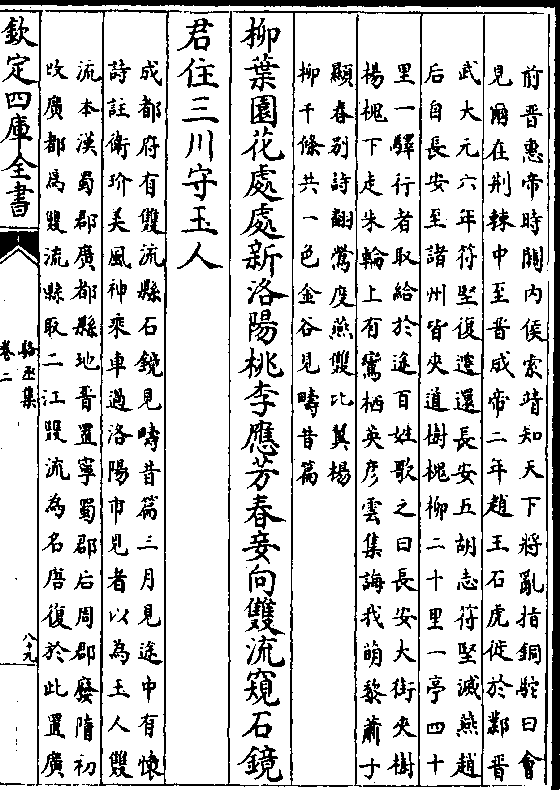 前晉惠帝時關內侯索靖知天下將亂指銅駝曰會
見爾在荆棘中至晉成帝二年趙王石虎徙於鄴晉
武大元六年符堅復遷還長安五胡志符堅滅燕趙
后自長安至諸州皆夾道樹槐柳二十里一亭四十
里一驛行者取給於途百姓歌之曰長安大街夾樹
楊槐下走朱輪上有鸞栖英彦雲集誨我萌黎蕭子
顯春别詩翻鶯度燕雙比翼楊
柳千條共一色金谷見疇昔篇
柳葉園花處處新洛陽桃李應芳春妾向雙流窺石鏡
君住三川守玉人
成都府有雙流縣石鏡見疇昔篇三月見途中有懷
詩註衛玠美風神乘車過洛陽市見者以為玉人雙
流本漢蜀郡廣都縣地晉置寧蜀郡后周郡廢隋初
改廣都爲雙流縣取二江雙流為名唐復於此置廣
欽定四庫全書
駱丞集
卷二
八十九